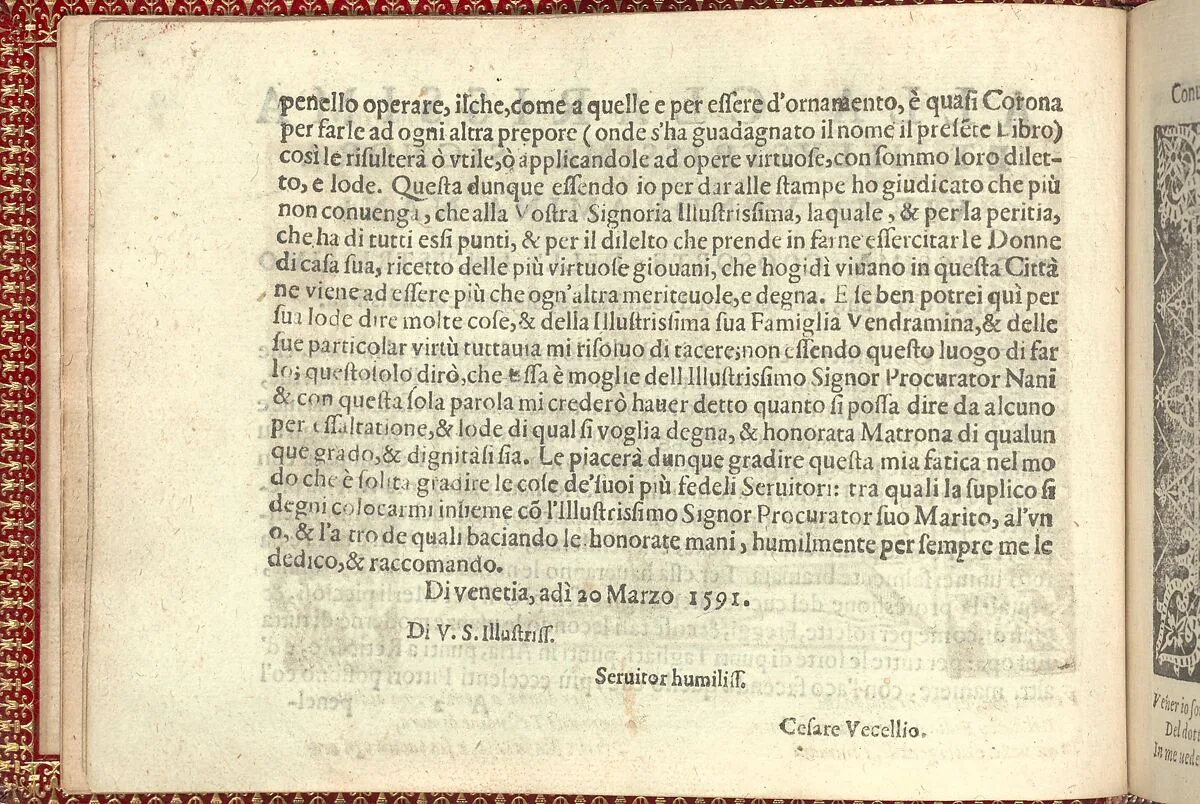 penello operare, ilche, come a quelle e per eſſere d'ornamento, è quaſi Corona
per farle ad ogni altra prepore ( onde s'ha guadagnato il nome il preſẽte Libro)
così le riſulterà ò vtile, ò applicandole ad opere virtuoſe, con ſommo loro dilet-
to, e lode. Queſta dunque eſſendo io per dar alle ſtampe ho giudicato che più
non conuenga, che alla Voſtra Signoria Illuſtriſſima, laquale, & per la peritia,
che ha di tutti eſsi punti, & per il dilelto che prende in farne eſſercitar le Donne
di caſa ſua, ricetto delle più virtuoſe giouani, che hogidì viuano in queſta Città
ne viene ad eſſere più che ogn'altra meriteuole, e degna. E ſe ben potrei quì per
ſua lode dire molte coſe, & della Illuſtriſſima ſua Famiglia Vendramina, & delle
ſue particolar virtù tuttauia mi riſoluo di tacere; non eſſendo queſto luogo di far
lo; queſto ſolo dirò, che eſſa è moglie dell Illuſtriſſimo Signor Procurator Nani
& con queſta ſola parola mi crederò hauer detto quanto ſi poſſa dire da alcuno
per eſſaltatione, & lode di qual ſi voglia degna, & honorata Matrona di qualun
que grado, & dignità ſi ſia. Le piacerà dunque gradire queſta mia fatica nel mo
do che è ſolita gradire le coſe de'ſuoi più fedeli Seruitori: tra quali la ſuplico ſi
degni colocarmi inſieme cõ l'Illuſtriſſimo Signor Procurator ſuo Marito, al'vn
o, & l'a tro de quali baciando le honorate mani, humilmente per ſempre me le
dedico, & raccomando.
Di venetia, adì 20 Marzo 1591.
Di V. S. Illuſtriſſ.
Seruitor humiliſſ.
Ceſare Vecellio.
Del dott
In me uede